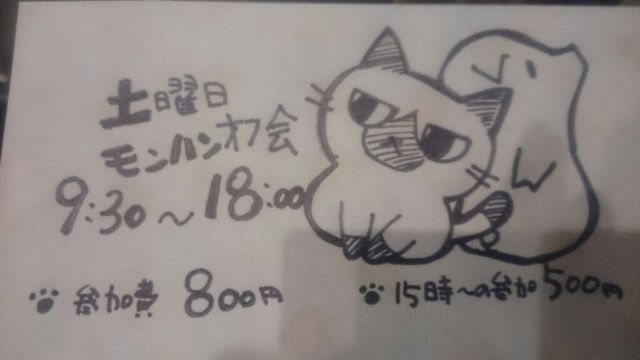 土曜日
モンハンオフ会
9:30〜18:00
参加費 800円
15時〜の参加500円